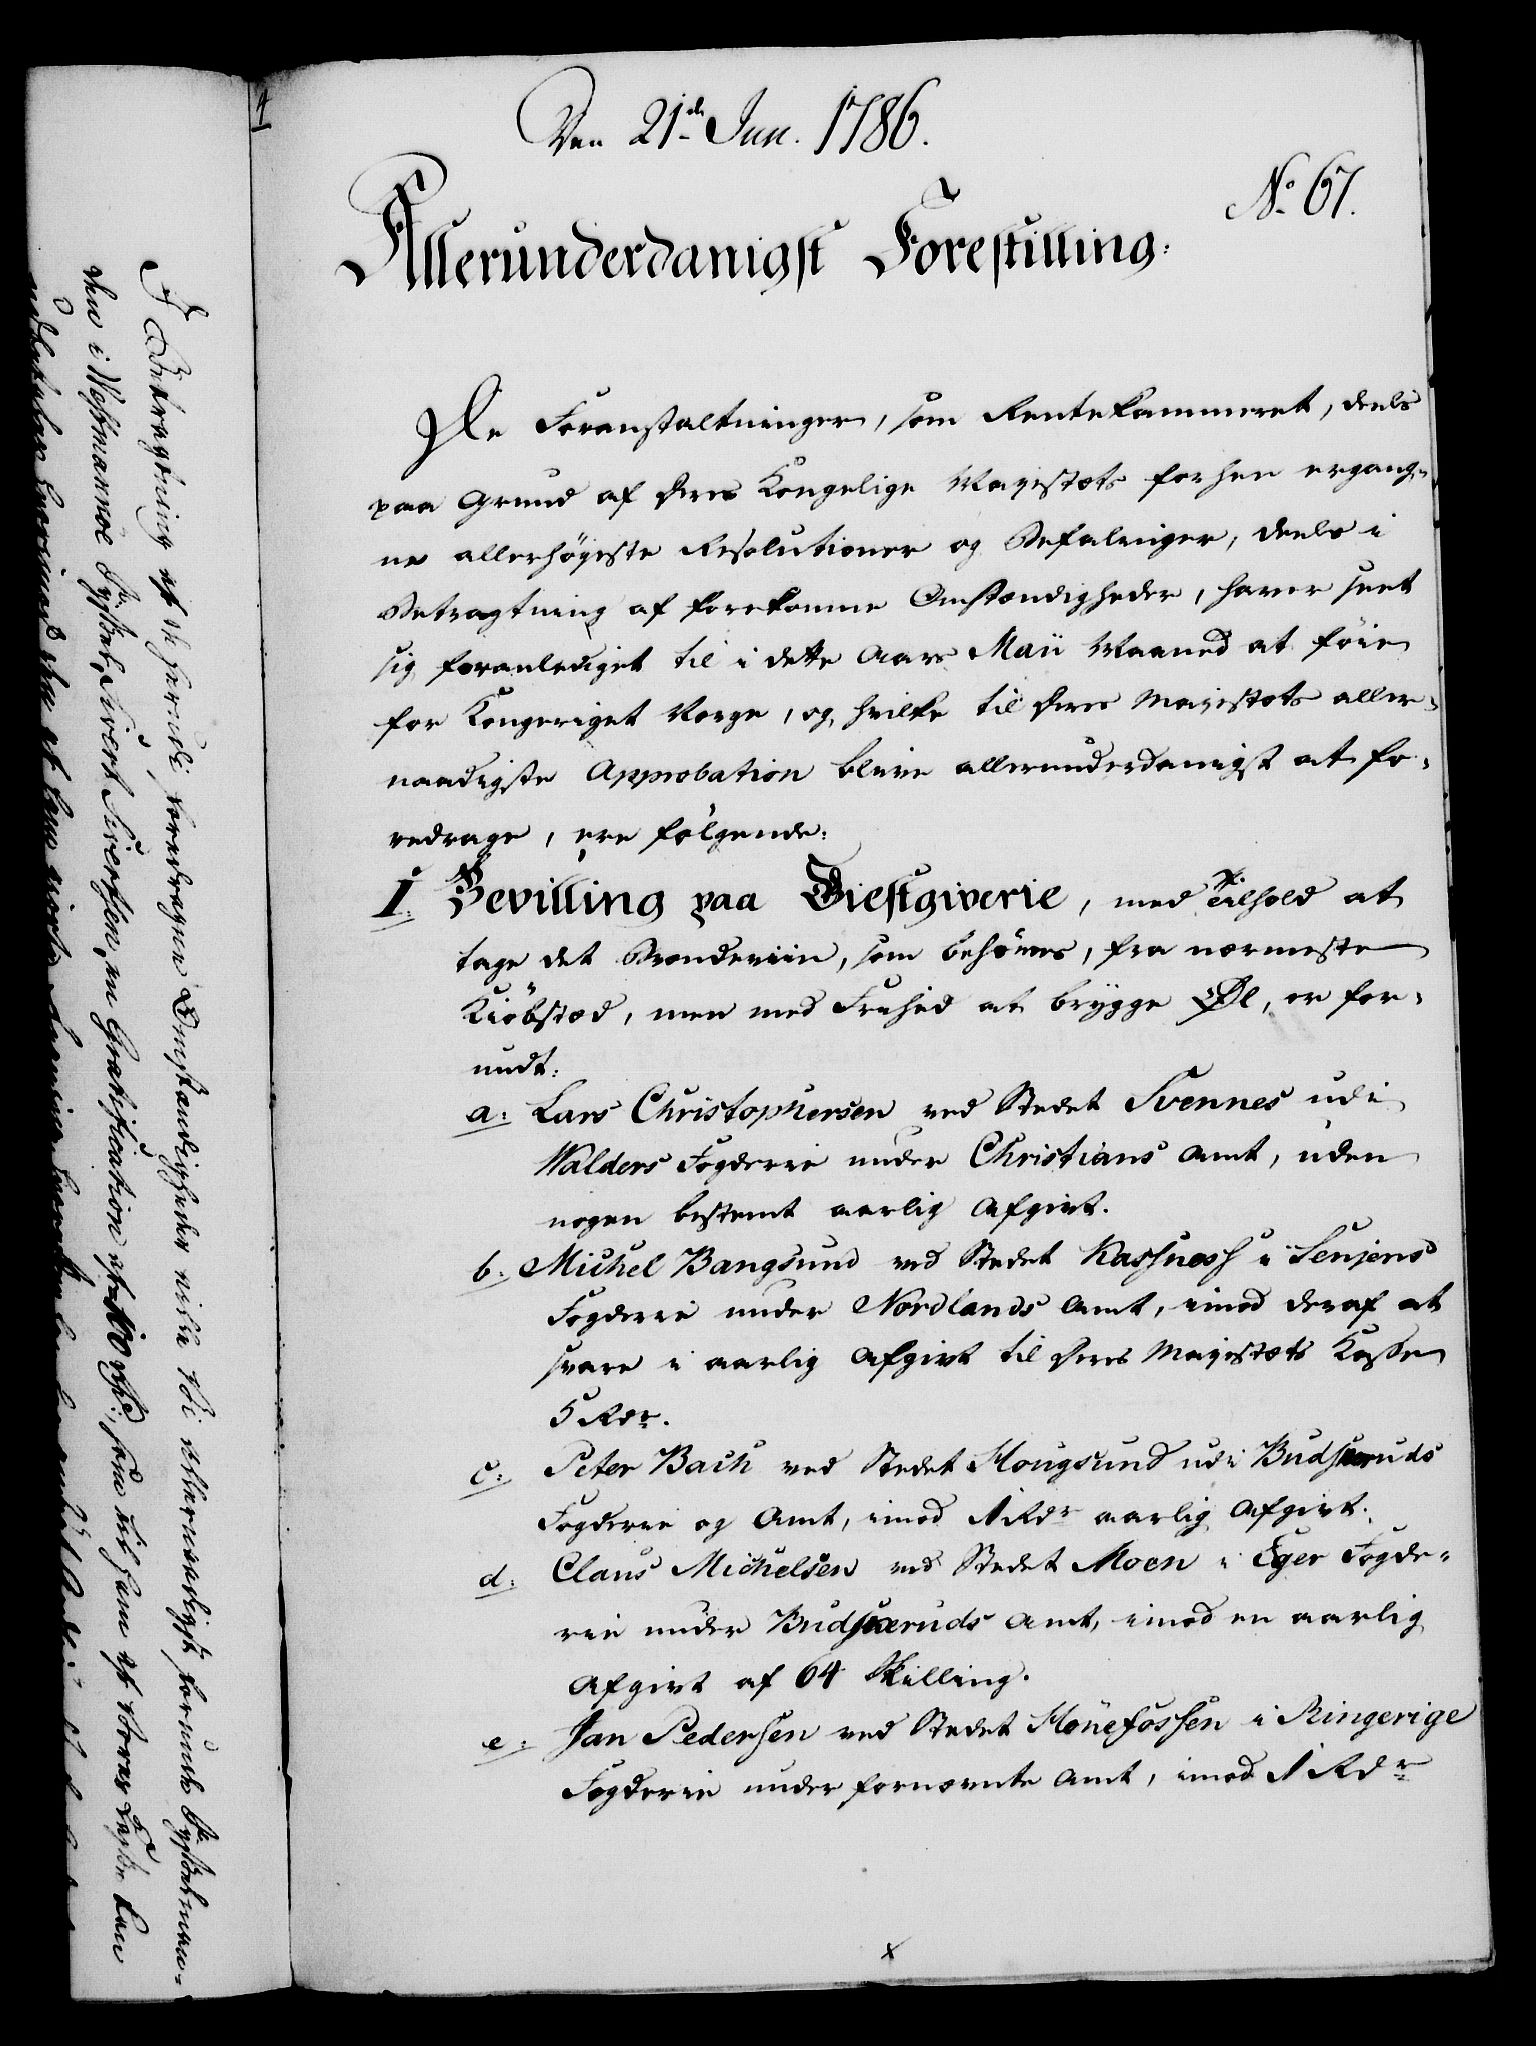 4
Den 21de Jun. 1786.
No. 67.
Allerunderdanigst Forestilling:
De Foranstaltninger, som Rentekammeret, deels
paa Grund af Deres Kongelige Mayestæts forhen ergang-
ne allerhøyeste Resolutioner og Befalinger, deels i
Betragtning af forekomne Omstændigheder, haver seet
sig foranlediget til i dette Aars Maii Maaned at føie
for Kongeriget Norge, og hvilke til Deres Mayestæts aller-
naadigste Approbation blive allerunderdanigst at fo-
redrage, ere følgende:
I. Bevilling paa Giestgiverie, med Tilhold at
tage det Brændeviin, som behøves, fra nærmeste
Kiøbstæd, men med Friehed at brygge Øl, er for-
undt:
a: Lars Christophersen ved Stedet Svennes udi
Walders Fogderie under Christians Amt, uden
nogen bestemt aarlig Afgivt.
b: Michel Bangsund ved Stedet Kassness i Senjens
Fogderie under Nordlands Amt, imod deraf at
svare i aarlig Afgivt til Deres Mayestæts Kasse
5 Rdr.
c: Peter Bach ved Stedet Hougsund udi Budskeruds
Fogderie og Amt, imod 1 Rdr aarlig Afgivt.
d: Claus Michelsen ved Stedet Moen i Eger Fogde-
rie under Budskeruds Amt, imod en aarlig
Afgivt af 64 Skilling.
e: Jan Pedersen ved Stedet Hønefossen i Ringerige
Fogderie under fornævnte Amt, imod 1 Rdr
x
I Betragtning af de herudi foredragne Omstændigheder ville Vi allernaadigst forunde Sysselman-
den i Westmannøe Syssel, Sivert Sivertsen, en Gratification af 100 rd:, som bør ham af Vores Casse kan